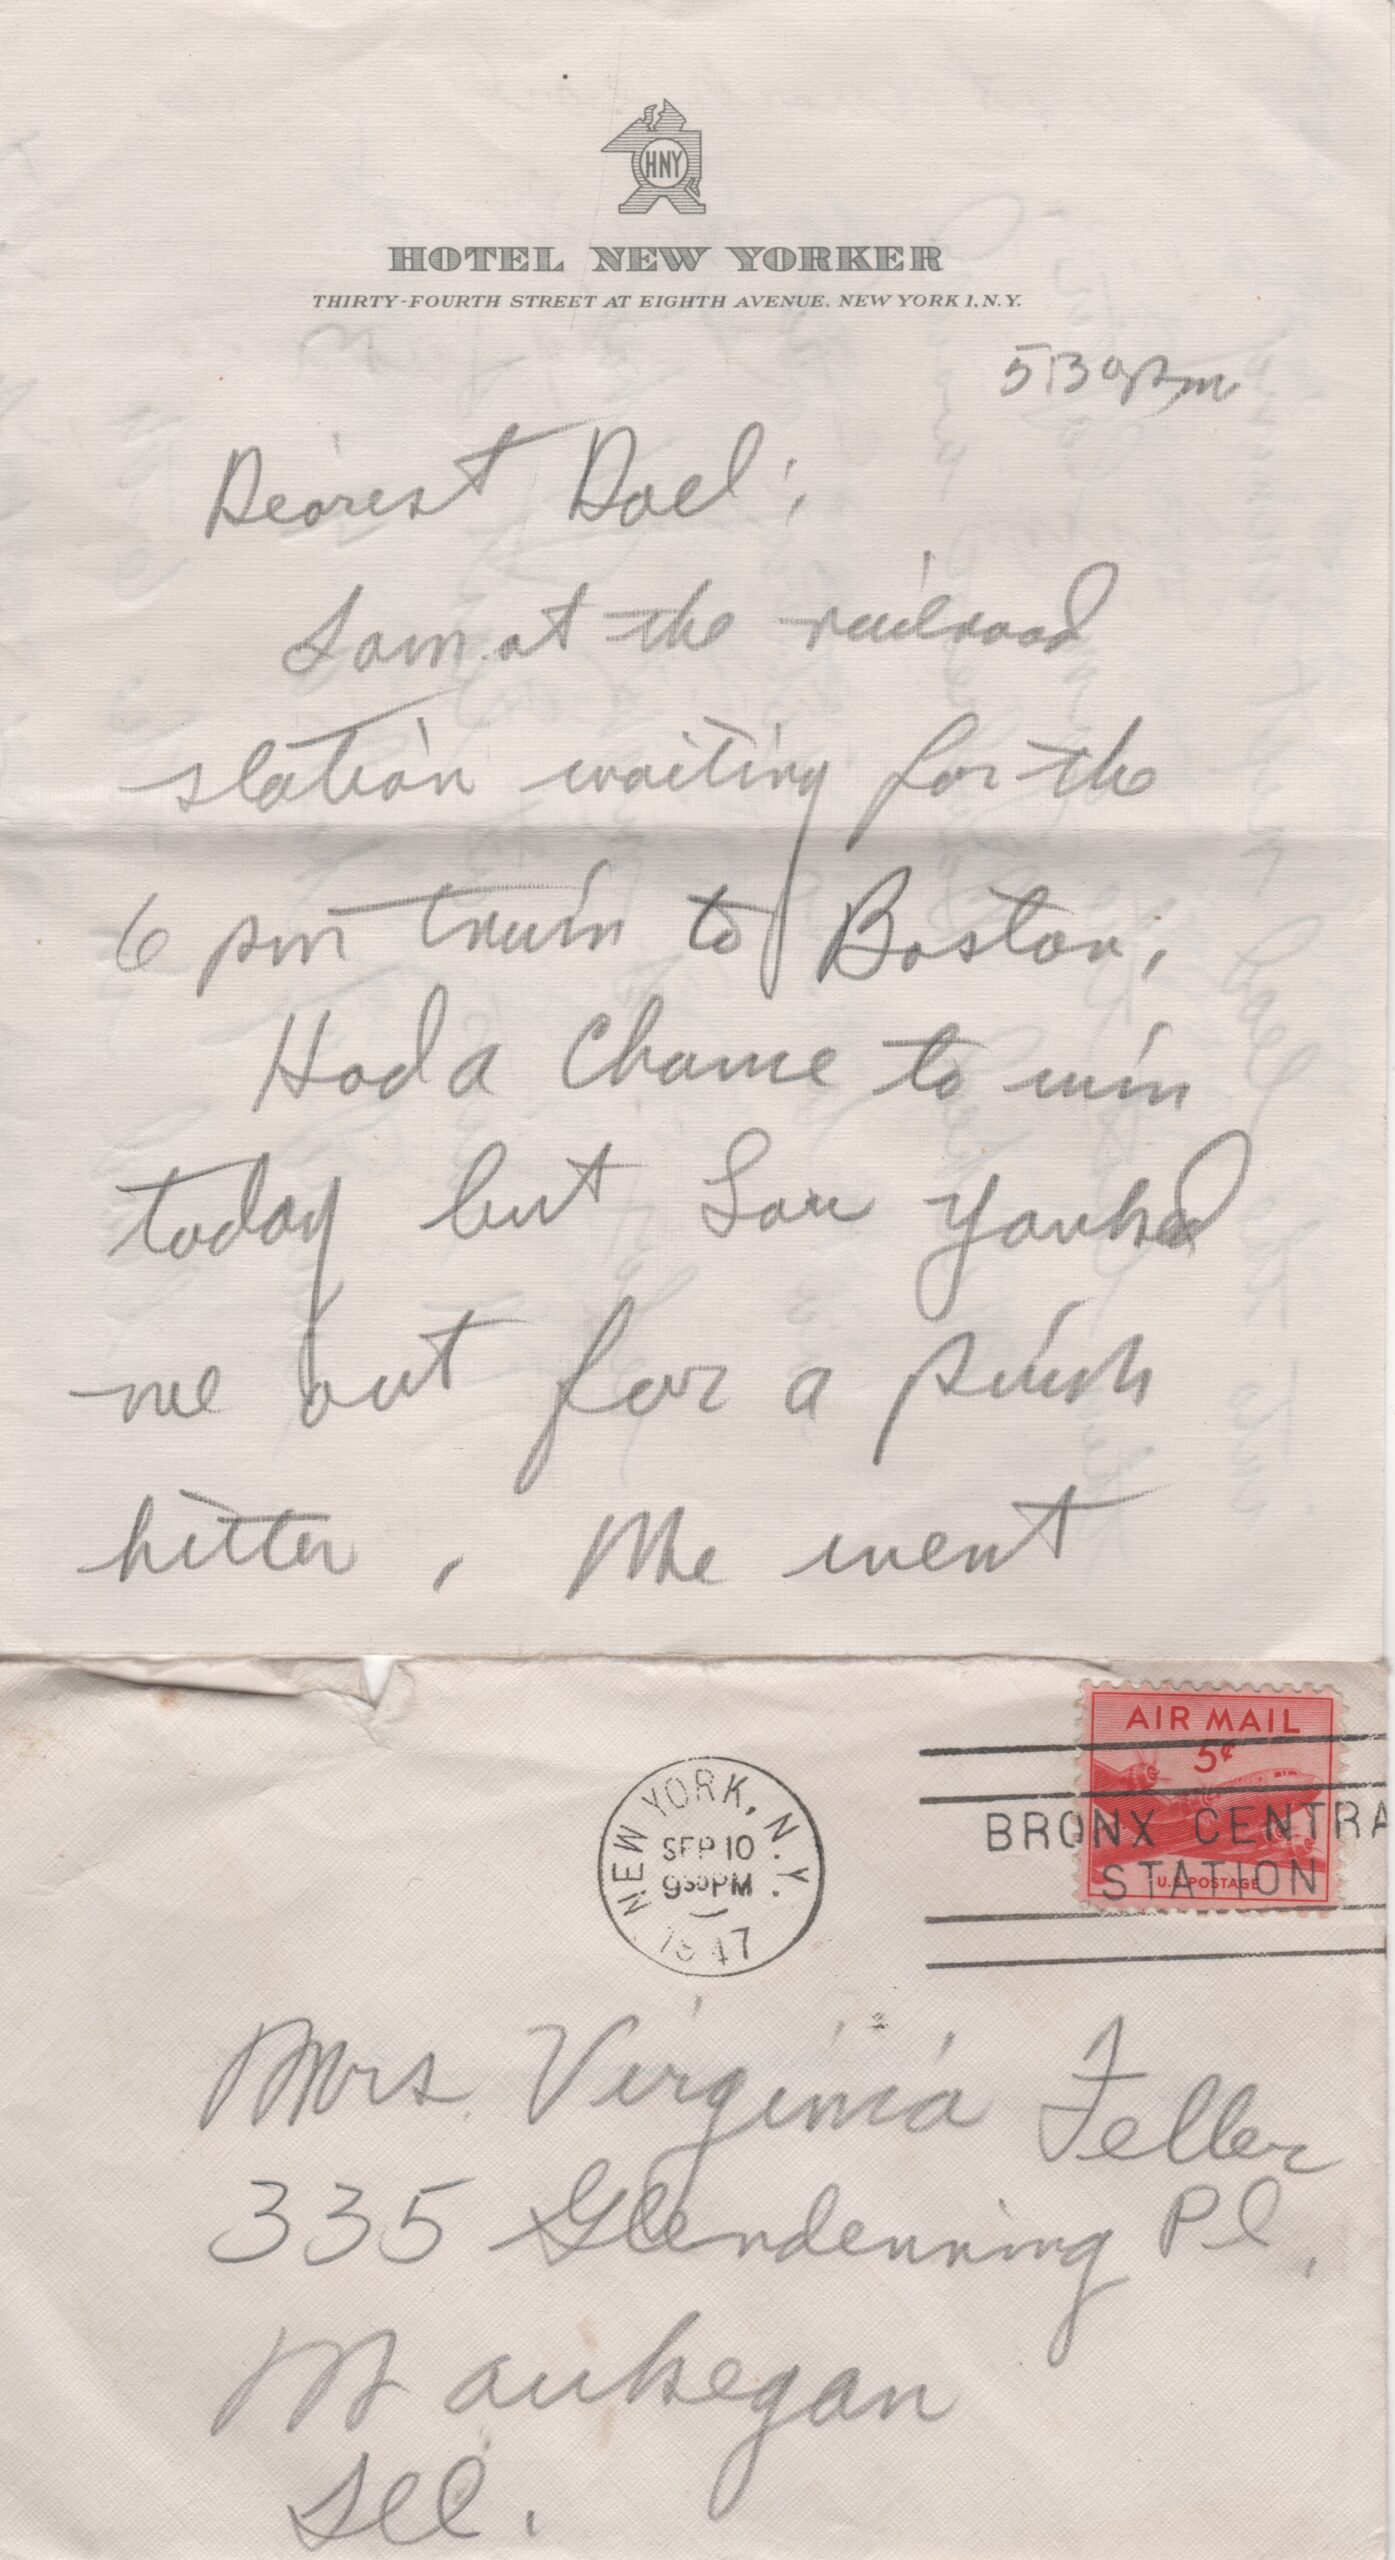 HNY
HOTEL NEW YORKER
THIRTY-FOURTH STREET AT EIGHTH AVENUE, NEW YORK 1, N.Y.
5:30 p.m.
Dearest Dael:
I am at the railroad
station waiting for the
6 pm train to Boston.
Had a chance to win
today but Lou Yanked
me out for a pinch
hitter. We went
AIR MAIL
5¢
U.S. POSTAGE
NEW YORK, N.Y.
SEP 10
9 30 PM
1947
BRONX CENTRA
STATION
Mrs. Virginia Feller
335 Glendenning Pl.
Waukegan
Ill.